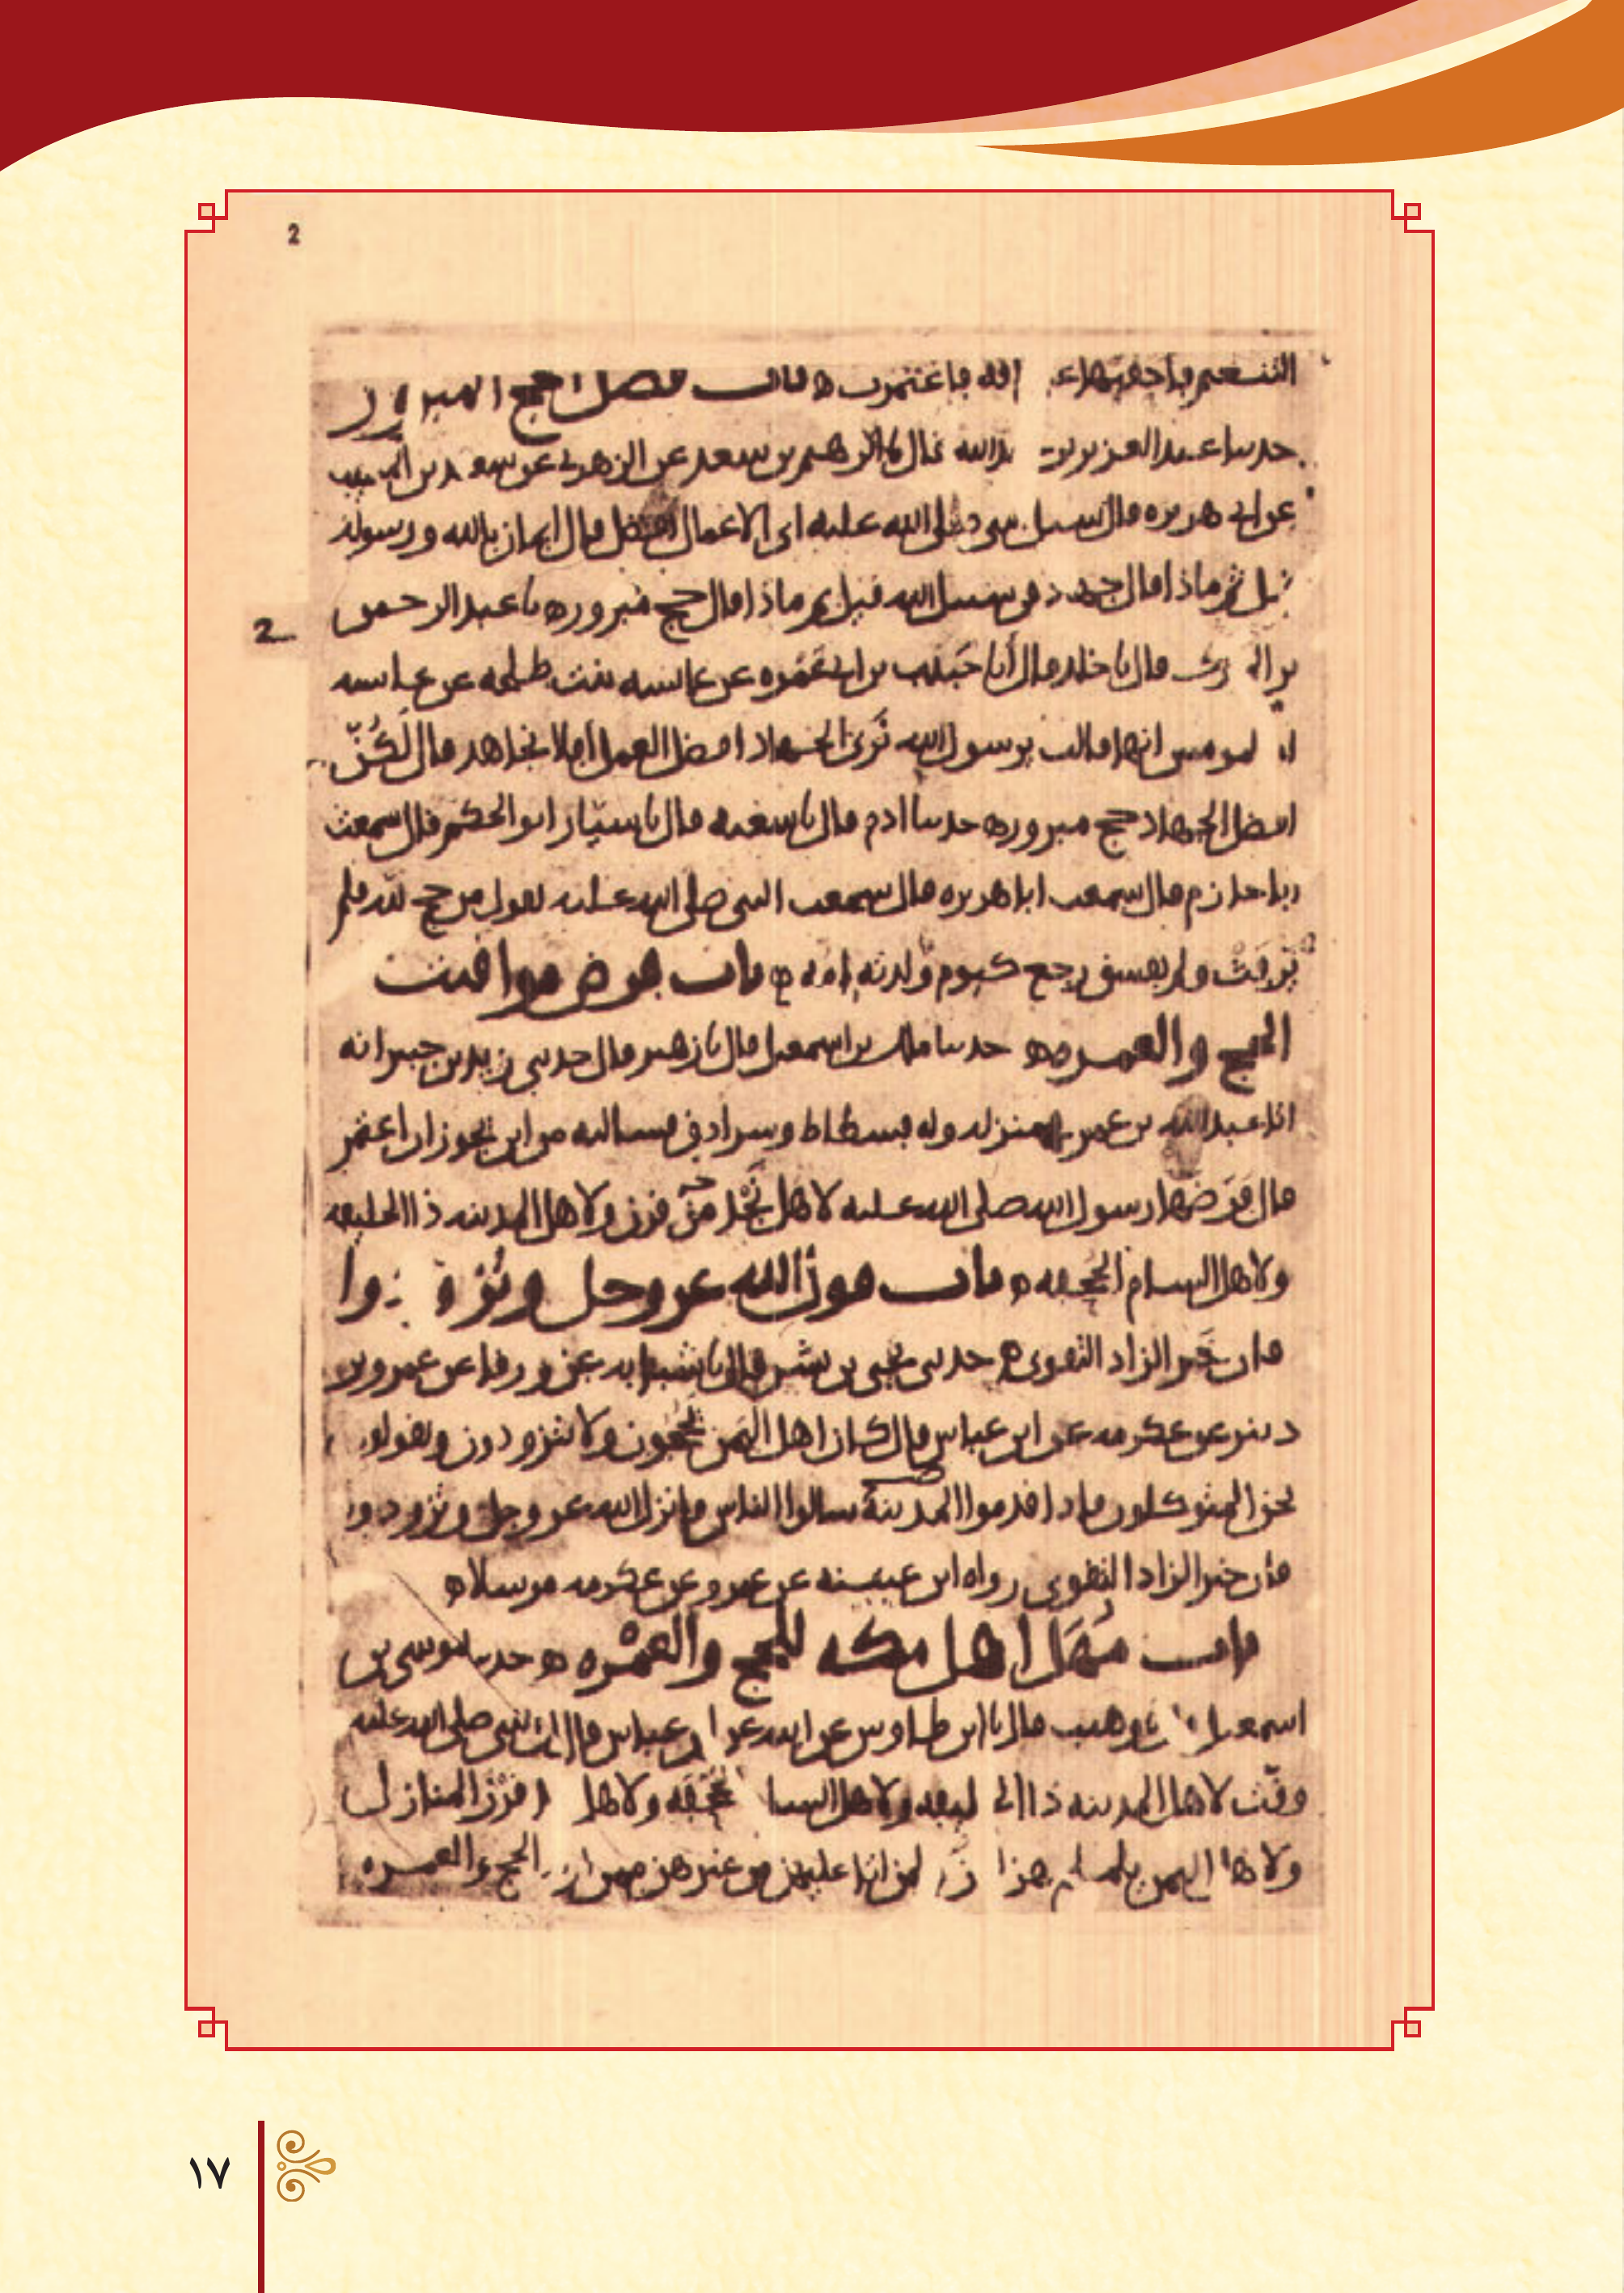 2
التنعيم فاحقبها على ناقه فاعتمرت ه باب فضل الحج المبرور
حدثنا عبد العزيز بن عبدالله قال نا ابرهيم بن سعد عن الزهري عن سعيد بن المسيب
عن ابي هريره قال سيل النبي صلى الله عليه اي الاعمال افضل قال ايمان بالله ورسوله
قيل ثم ماذا قال جهاد في سبيل الله قيل ثم ماذا قال حج مبرور ه نا عبد الرحمن
2
بن المبرك قال نا خلد قال أنا حبيب بن ابي عمره عن عايشه بنت طلحه عن عايشه
ام المومنين انها قالت يرسول الله نرى الجهاد افضل العمل افلا نجاهد قال لكنّ
افضل الجهاد حج مبرور ه حدثنا ادم قال نا شعبه قال نا سيّار ابو الحكم قال سمعت
ابا حازم قال سمعت ابا هريره قال سمعت النبي صلى الله عليه يقول من حج لله فلم
يرفث ولم يفسق رجع كيوم ولدته امه ه باب فرض مواقيت
الحج والعمره ه حدثنا ملك بن اسمعيل قال نا زهير قال حدثني زيد بن جبير انه
اتا عبدالله بن عمر في منزله وله فسطاط وسرادق فسالته من اين يجوز ان اعتمر
قال فرضها رسول الله صلى الله عليه لاهل نجد من قرن ولاهل المدينه ذا الحليفه
ولاهل الشام الجحفه ه باب قول الله عز وجل وتزودوا
فان خير الزاد التقوى ه حدثني يحيى بن بشر قال نا شبابه عن ورقا عن عمرو بن
دينر عن عكرمه عن ابن عباس قال كان اهل اليمن يحجون ولا يتزودون ويقولون
نحن المتوكلون فاذا قدموا المدينة سالوا الناس فانزل الله عز وجل وتزودوا
فان خير الزاد التقوى رواه ابن عيينه عن عمرو عن عكرمه مرسلا ه
باب مُهَل اهل مكه للحج والعمره ه حدثنا موسى بن
اسمعيل نا وهيب قال نا ابن طاوس عن ابيه عن ابن عباس قال ان النبي صلى الله عليه
وقّت لاهل المدينه ذا الحليفه ولاهل الشام الجحفه ولاهل نجد قرن المنازل
ولاهل اليمن يلملم هن لهن ولمن اتا عليهن من غيرهن ممن اراد الحج والعمره
١٧